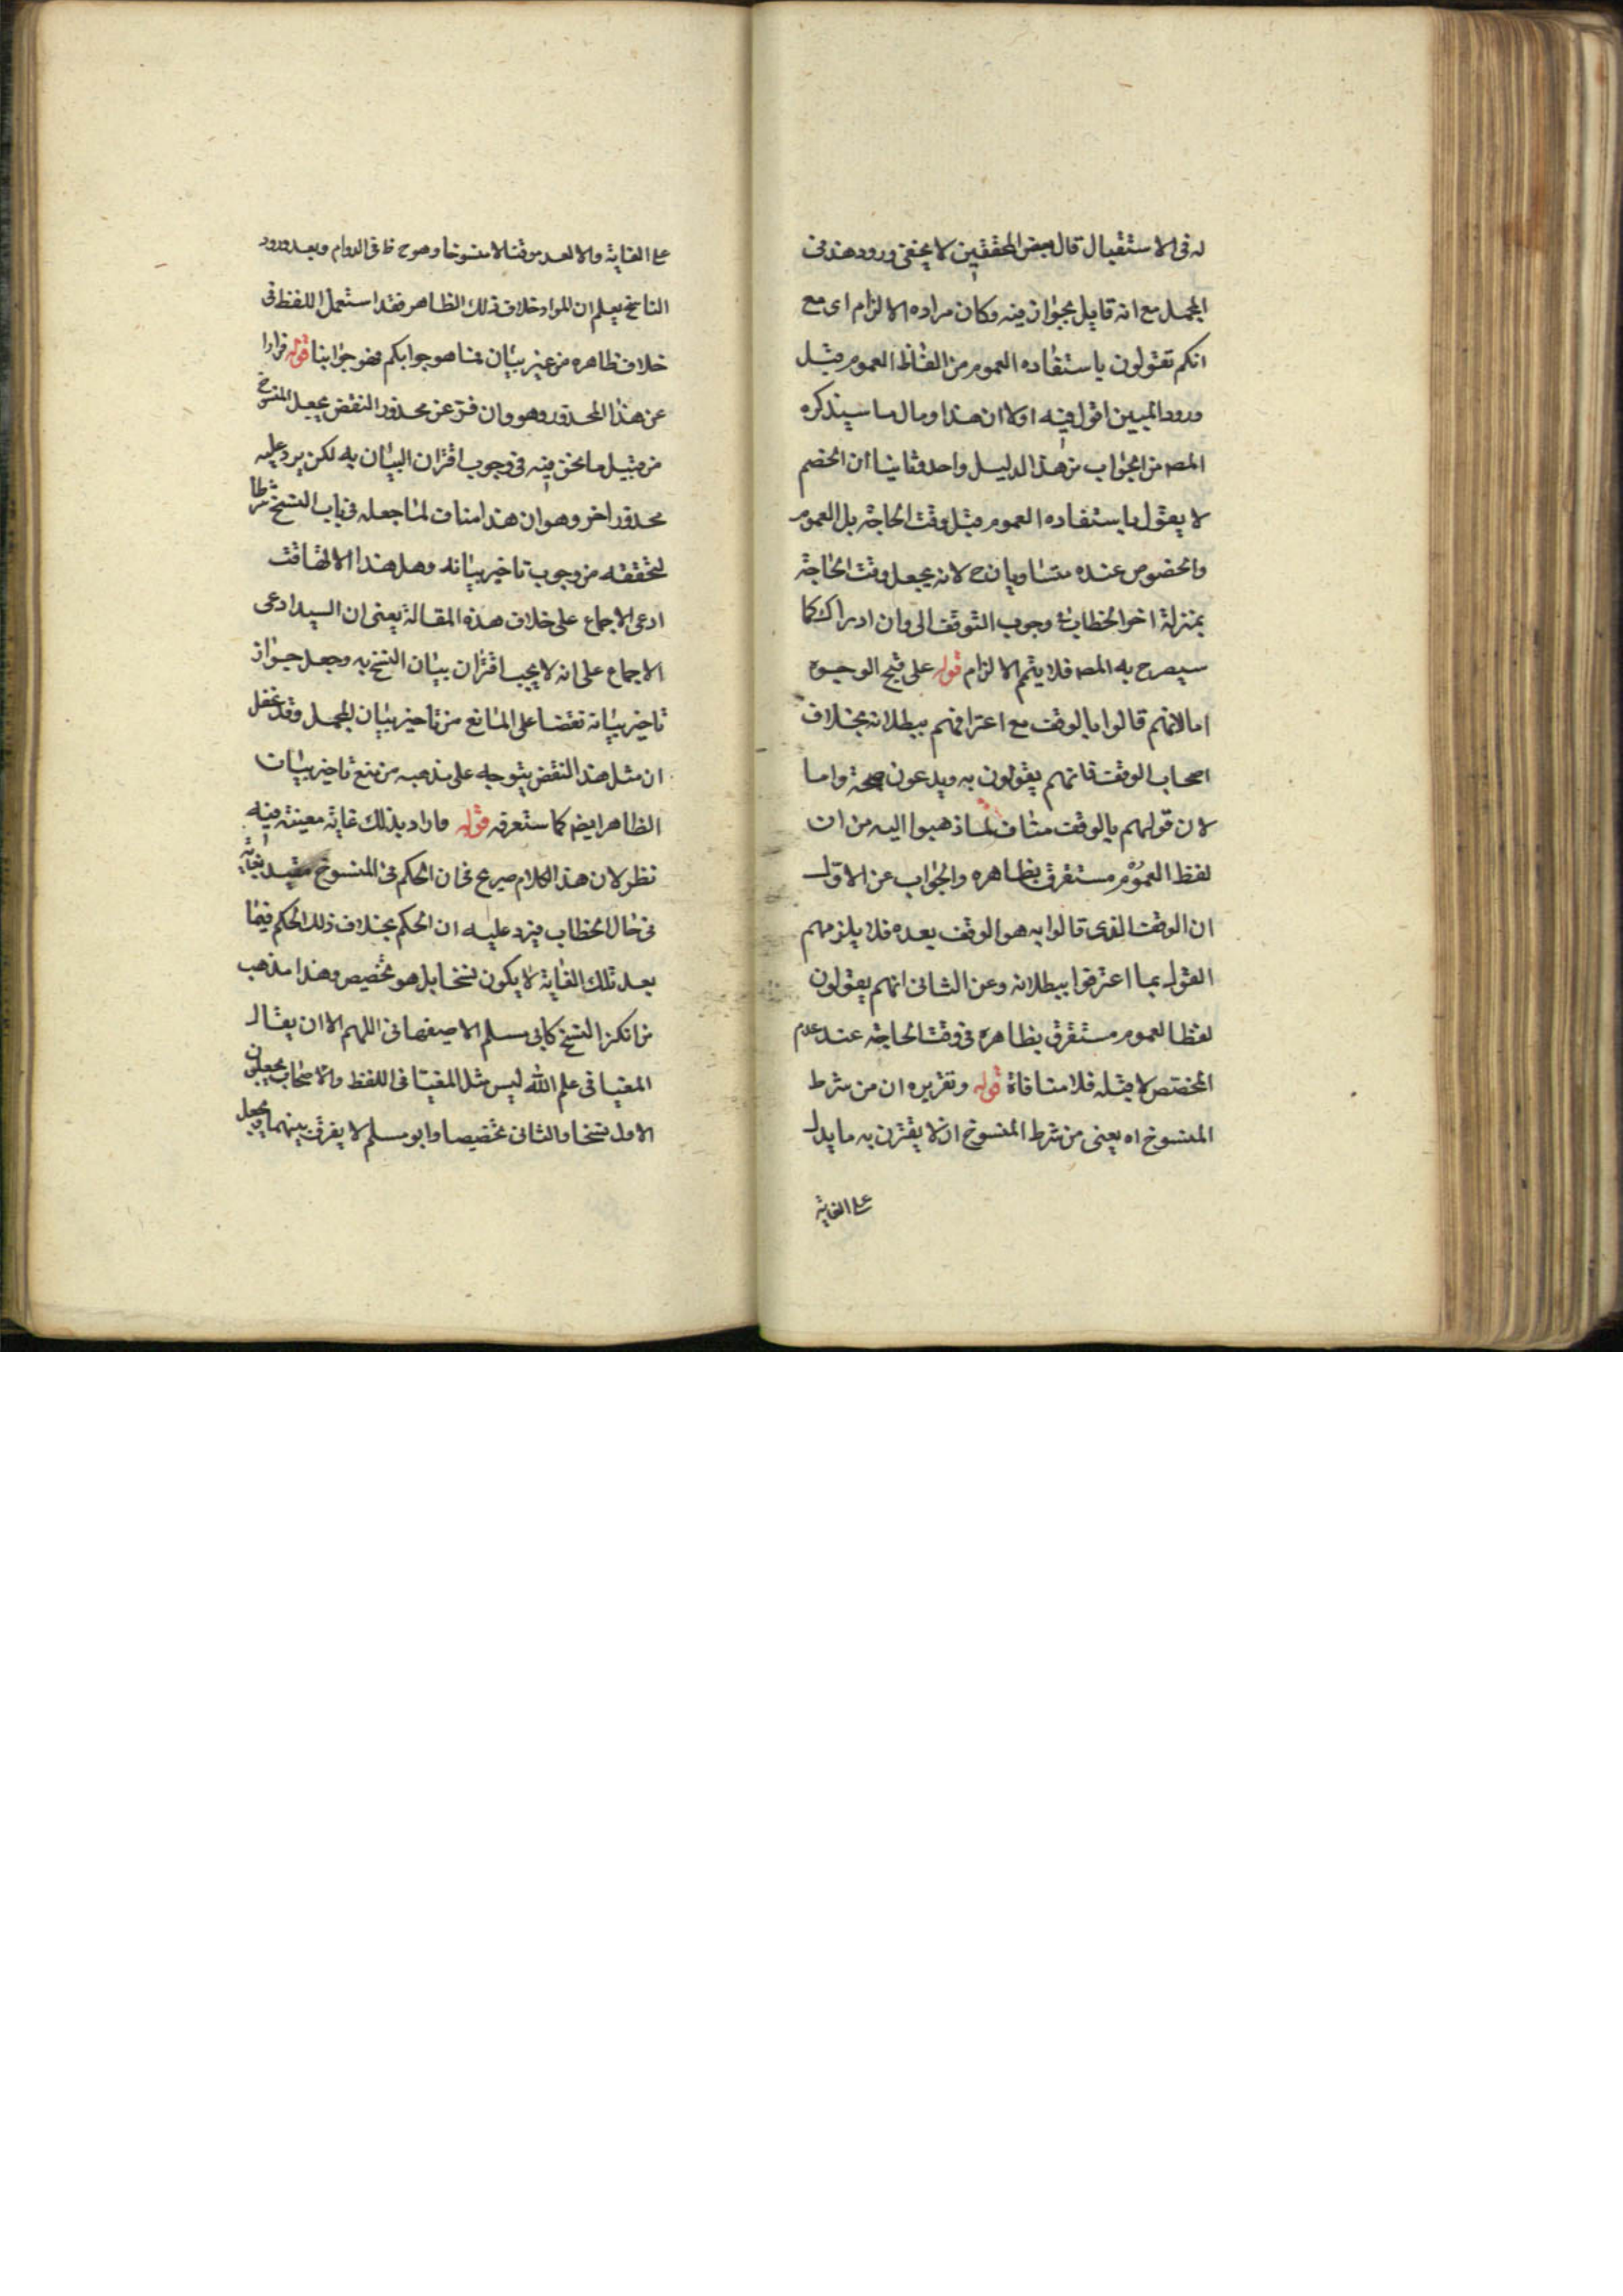 له فى الاستقبال قال بعض المحققين لا يخفى ورود هذا فى
المجمل مع انه قايل بجواز فيه وكان مراده الالزام اى مع
انكم تقولون باستفاده العموم من الفاظ العموم قبل
ورود المبين اقول فيه اولا ان هذا ومال ما سيذكره
المصه من الجواب من هذا الدليل واحد وثانيا ان الخصم
لا يقول باستفاده العموم قبل وقت الحاجة بل العموم
والخصوص عنده متساويان ح لانه يجعل وقت الحاجة
بمنزلة اخر الخطاب وجوب التوقف الى وان ادراك كما
سيصرح به المصه فلا يتم الالزام قوله على قبح الوجوه
اما لانهم قالوا بالوقف مع اعترافهم ببطلانه بخلاف
اصحاب الوقف فانهم يقولون به ويدعون صحته واما
لان قولهم بالوقف مناف لما ذهبوا اليه من ان
لفظ العموم مستغرق بظاهره والجواب عن الاول
ان الوقف الذى قالوا به هو الوقف بعده فلا يلزمهم
القول بما اعترفوا ببطلانه وعن الثانى انهم يقولون
لفظ العموم مستغرق بظاهره فى وقت الحاجة عند عدم
المخصص لا قبله فلا منافاة قوله وتقريره ان من شرط
المنسوخ اه يعنى من شرط المنسوخ ان لا يقترن به ما يدل
على الغاية
على الغاية والا لعد موقتا لا منسوخا وهو ح ظ فى الدوام وبعد ورود
الناسخ يعلم ان المراد خلاف ذلك الظاهر فقد استعمل اللفظ فى
خلاف ظاهره من غير بيان فما هو جوابكم فهو جوابنا قوله فرارا
عن هذا المحذور وهو وان فر عن محذور النقض بجعل المنسوخ
من قبيل ما نحن فيه فى وجوب اقتران البيان به لكن يرد عليه
محذور اخر وهو ان هذا مناف لما جعله فى باب النسخ شرطا
لتحققه من وجوب تاخير بيانه وهل هذا الا تهافت
ادعى الاجماع على خلاف هذه المقالة يعنى ان السيد ادعى
الاجماع على انه لا يجب اقتران بيان النسخ به وجعل جواز
تاخير بيانه نقضا على المانع من تاخير بيان المجمل وقد غفل
ان مثل هذا النقض يتوجه على مذهبه من منع تاخير بيان
الظاهر ايضه كما ستعرفه قوله واراد بذلك غاية معينة فيه
نظر لان هذا الكلام صريح فى ان الحكم فى المنسوخ مقيد بغاية
فى حال الخطاب فيرد عليه ان الحكم بخلاف ذلك الحكم فيما
بعد تلك الغاية لا يكون نسخا بل هو تخصيص وهذا مذهب
من انكر النسخ كابى مسلم الاصفهانى اللهم الا ان يقال
المغيا فى علم الله ليس مثل المغيا فى اللفظ والاصحاب يجعلون
الاول نسخا والثانى تخصيصا وابو مسلم لا يفرق بينهما ويجعل